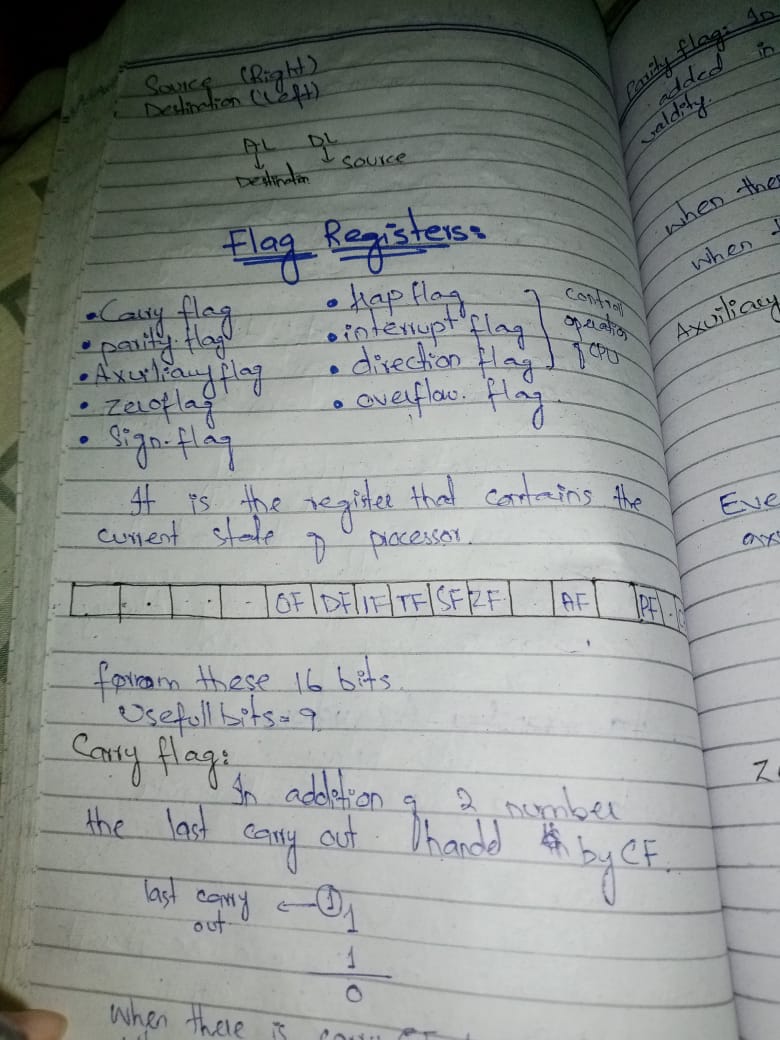 Source (Right)
Destination (Left)
AL DL
↓ ↓ source
Destination
Flag Registers:
• Carry flag
• parity flag
• Axuiliary flag
• zeroflag
• Sign. flag
• trap flag
• interrupt flag
• direction flag
• overflow. flag
control
operation
of CPU
It is the register that contains the
current state of processor.
OF DF IF TF SF ZF AF PF
these 16 bits.
Usefull bits = 9
Carry flag:
In addition of 2 number
the last carry out handel by CF.
last carry ← 1 1
out
1
0
When there is
Parity flag: In
added in
valdity.
when
when
Axuiliary
Eve